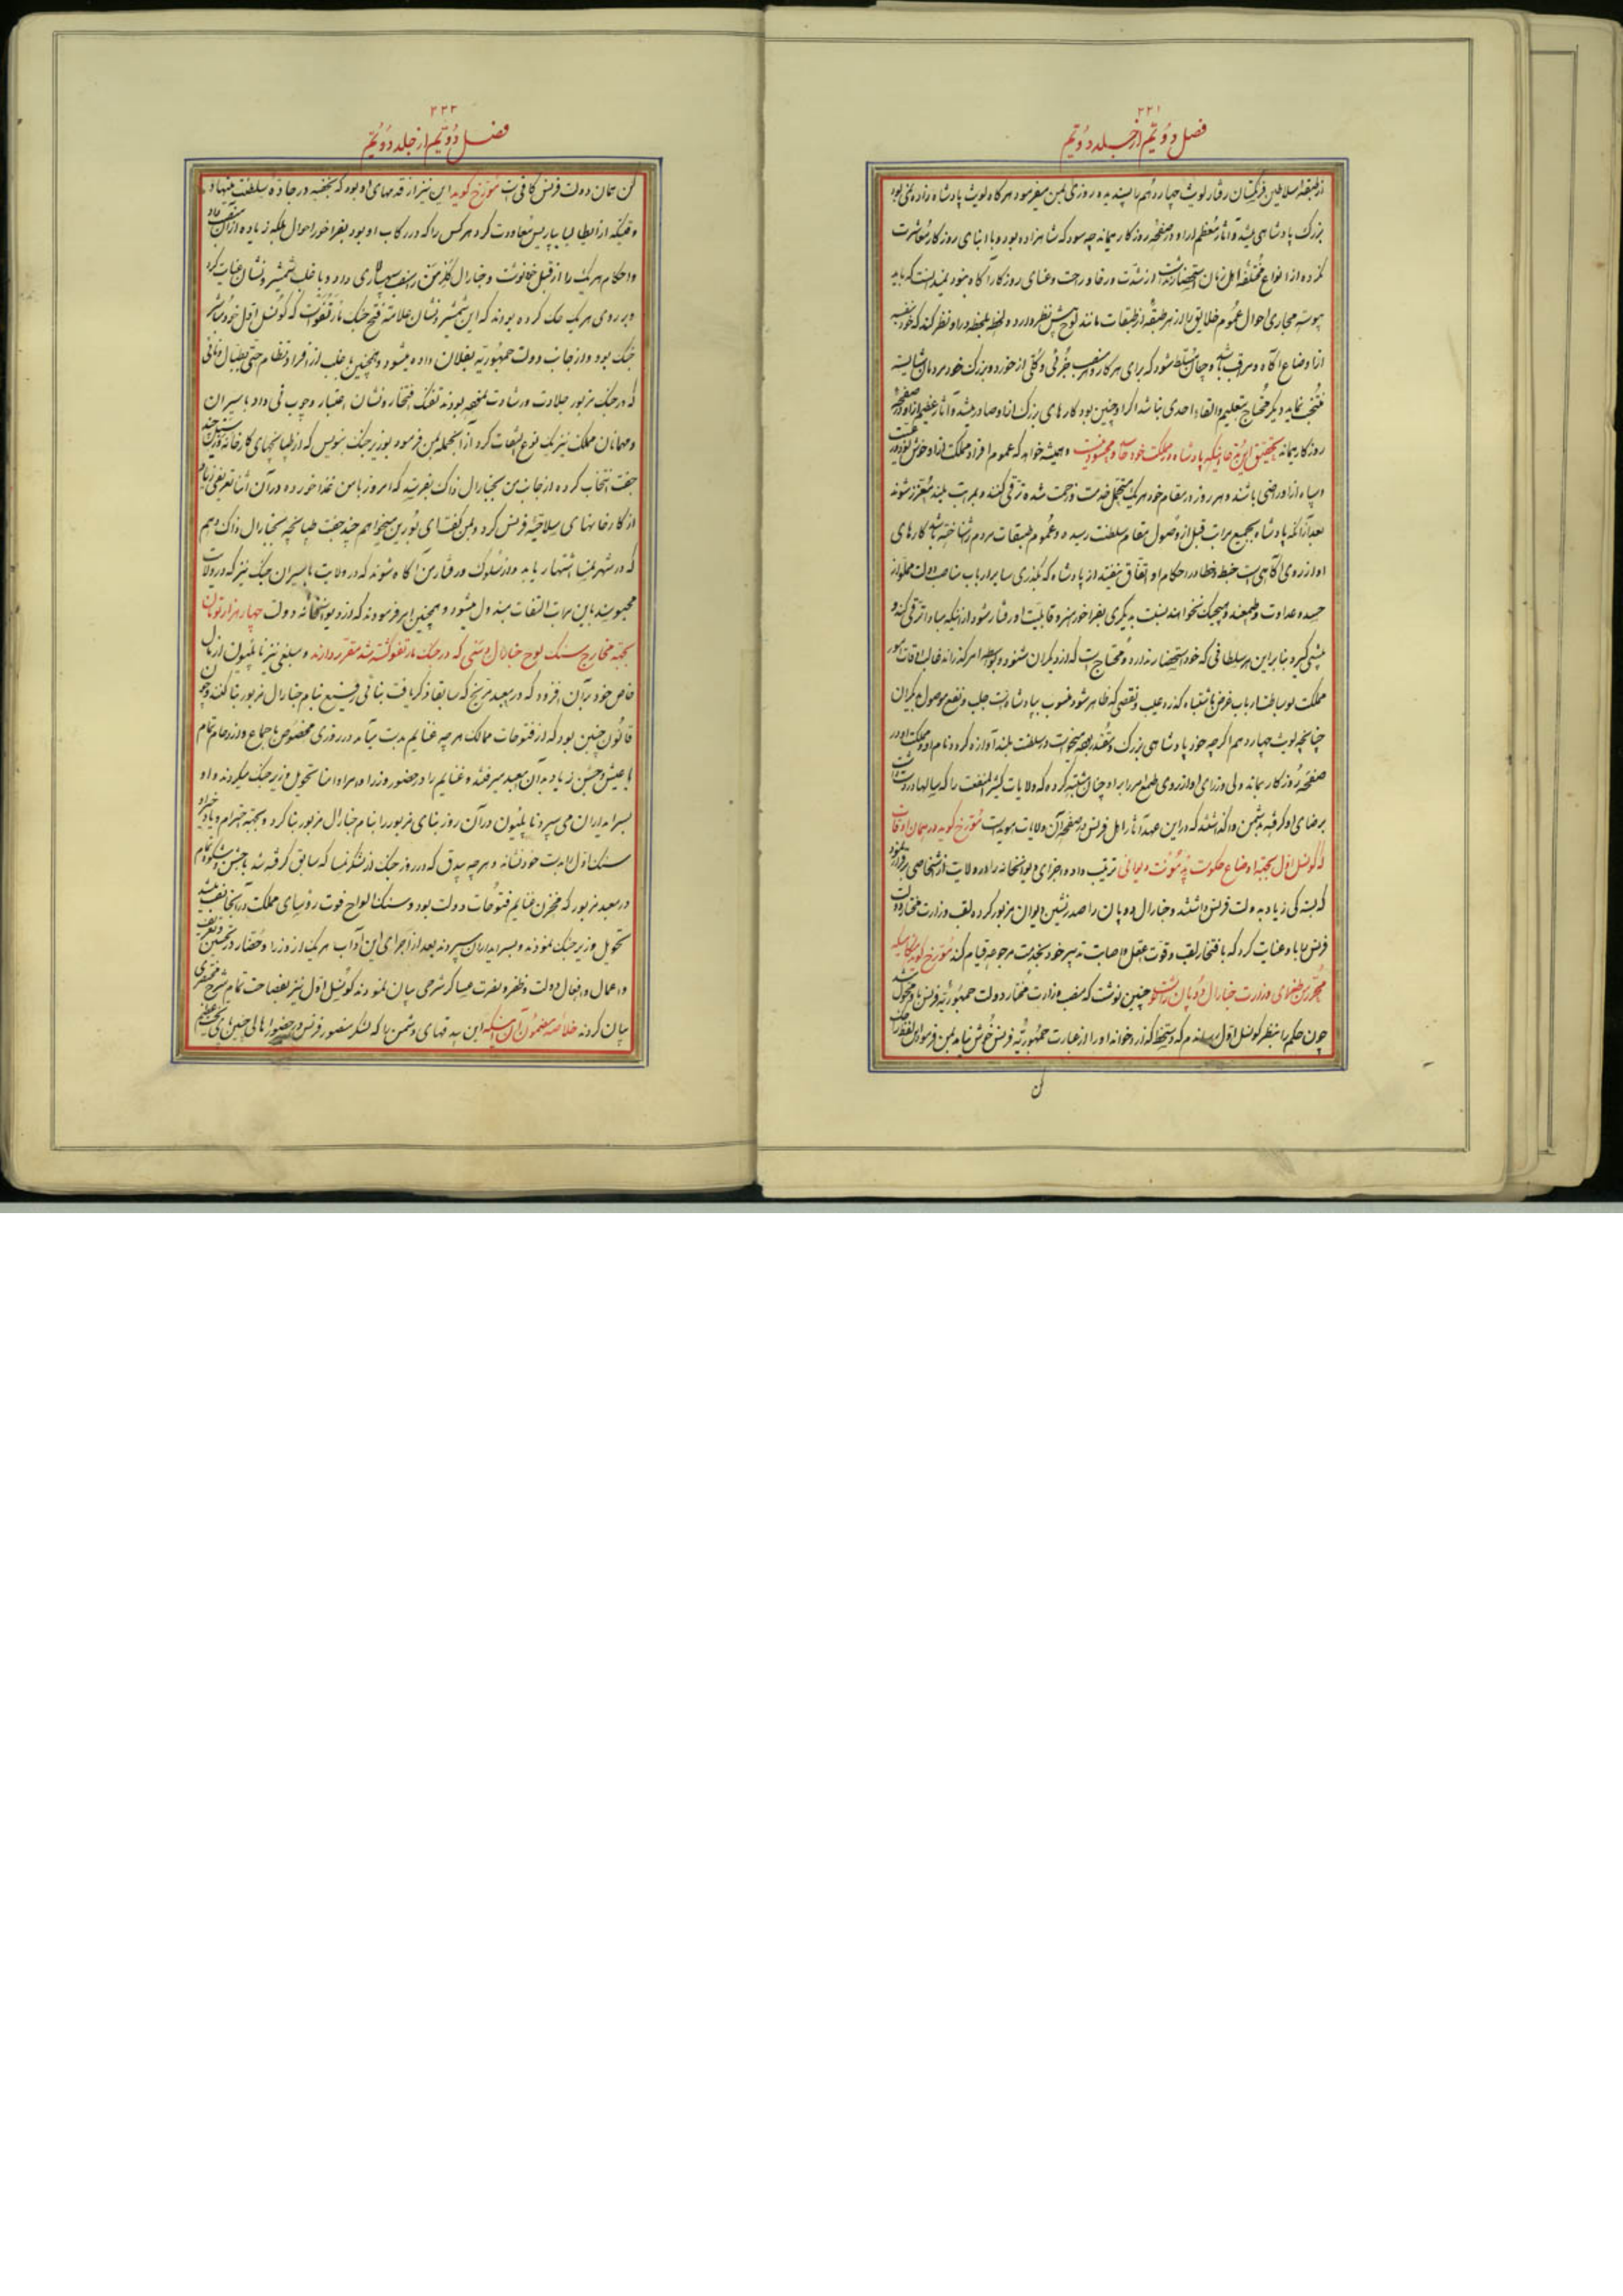 ۲۲۱
فصل دوّیّم از جلد دوّیّم
از طبقهٔ سلاطین فرنگستان رفتار لویث چهاردهم را پسندیده روزی بمن میفرمود هرگاه لویث پادشاه زاده نمی‌بود
بزرگ پادشاهی میشد و آثار معظم از او در صفحهٔ روزگار میماند چه سود که شاهزاده بود و با ابنای روزگار معاشرت
نکرده از انواع مختلفهٔ اهل زمان استحضار نداشت از شدّت و رفاه و راحت و عنای روزگار آگاه نبود
پیوسته مجاری احوال عموم خلایق را از هر طبقه از طبقات مانند لوح پیش نظر دارد و لحظه بلحظه در او نظر کند که خود بنفسه
از اوضاع آگاه و مراقب باشد و چنان مسلط شود که برای هر کار و هر منصب جزئی و کلی از خورد و بزرگ خود مردمان شایسته
منتخب نماید و دیگر محتاج بتعلیم و القاء احدی نباشد اگر او چنین بود کارهای بزرگ از او صادر میشد و آثار عظیم از او در صفحهٔ
روزگار میماند بتحقیق این رتبه پادشاه در مملکت خود و همیشه خواهد که عموم افراد مملکت از او خوش
و سپاه از او راضی باشند و هر روز در مقام خود هر یک متحمل خدمت و زحمت شده ترقی کنند و بمراتب بلند معزز شوند
بعد از آنکه پادشاه بجمیع مراتب قبل از وصول بمقام سلطنت رسیده و عموم طبقات مردم را شناخته باشد کارهای
او از روی آگاهی است خبط و خطا در احکام او اتفاق نیفتد از پادشاه که بگذری سایر ارباب مناصب دولت مملو از
حسد و عداوت و طمعند و هیچیک نخواهند نسبت بدیگری بفراخور هنر و قابلیت او رفتار شود از اینکه مبادا ترقی کند و
پیشی گیرد بنابراین هر سلطانی که خود استحضار ندارد و محتاج است که از دیگران شنود و بواسطه امر گذراند غالب اوقات امور
مملکت بوساطت ارباب غرض باشتباه گذرد عیب و نقصی که ظاهر شود منسوب بپادشاه است جلب و نفع موصول بدیگران
چنانچه لویث چهاردهم اگرچه خود پادشاهی بزرگ و مقتدر بود و در سلطنت بلند آوازه کرد و نام او و مملکت او در
صفحهٔ روزگار بماند ولی وزرای او از روی طمع امر را بر او چنان مشتبه کرده که ولایات کثیر المنفعت را که سالها در دست
برضای او گرفته بدشمن واگذاشتند که در این عهد آثار اهل فرنس در صفحهٔ آن ولایات هویداست مورّخ گوید در همان اوقات
که کونسل اوّل بجهة اوضاع حکومت دیوانی ترتیب داده و اجزای دیوانخانه را در ولایت از اشخاصی برقرار نمود
که بستگی زیاد بدولت فرنس داشتند و جنارال دوپان را صدرنشین ایوان مزبور کرده لقب وزارت مختار دولت
فرنس را باو عنایت کرد که با افتخار لقب و قوت عقل و اصابت تدبیر خود بخدمت مرجوعه قیام کند مورّخ گوید هنگامیکه
تحریر من طغرای وزارت جنارال دوپان را چنین نوشت که منصب وزارت مختار دولت جمهوریّه فرنس باو محوّل شد
چون حکم را بنظر کونسل اوّل رساندم که دستخط گذارد خواند او را از عبارت جمهوریّه فرنس خوش نیامد بمن فرمود این لفظ را حک
۲۲۲
فصل دوّیّم از جلد دوّیّم
کن همان دولت فرنس کافی است مورّخ گوید این نیز از قدمهای او بود که بخفیه در جادهٔ سلطنت مینهاد
وقتیکه از ایطالیا بپاریس معاودت کرد هر کس را که در رکاب او بود بفراخور احوال بلکه زیاده از آن منصب داد
و احکام هر یک را از قبل خود نوشت و جنارال کلرمن را منصب سپهسالاری داد و با غلب شمشیر و نشان عنایت کرد
و بر روی هر یک حک کرده بودند که این شمشیر و نشان علامت فتح جنگ مارنغو است که کونسل اوّل خود مباشر
جنگ بود و از جانب دولت جمهوریّه بفلان داده میشود و همچنین باغلب از افراد نظام حتی بطبّال
که در جنگ مزبور جلادت و رشادت بمنصه بودند تفنگ افتخار و نشان اعتبار و چوب نی داد باسیران
و مهمانان مملکت نیز یک نوع التفات کرد از آنجمله بمن فرمود بوزیر جنگ بنویس که از طپانچهای کارخانه ورسن چند
جفت انتخاب کرده از جانب من بجنارال ذاک بفرستد که امروز با من غذا خورده در آن اثنا تعریفی زیاد
از کارخانهای سلاحیهٔ فرنس کرد و بمن گفت ای بورین میخواهم چند جفت طپانچه بجنارال ذاک دهم
که در شهر نمسا اشتهار یابد و از سلوک و رفتار من آگاه شوند که در ولایت باسیران جنگ نیز که در ولایت
محبوسند باین مراتب التفات مبذول میشود و همچنین امر فرمودند که از دیوانخانه دولت چهار هزار تومان
بجهة مخارج سنگ لوح جنارال دسی که در جنگ مارنغو کشته شد مقرر دارند و مبلغی نیز ناپلیون از مال
خاص خود بر آن افزود که در معبد مرّیخ که سابقا ذکر یافت بنائی رفیع بنام جنارال مزبور بنا کنند و چون
قانون چنین بود که از فتوحات ممالک هر چه غنایم بدست میآمد در روزی مخصوص با اجماع و ازدحام تمام
با عیش و جشن زیاد بدان معبد میرفتند و غنایم را در حضور وزرا و امرا و امنا تحویل وزیر جنگ میکردند و او
بسرایداران می‌سپرد ناپلیون در آن روز بنای مزبور را بنام جنارال مزبور بنا کرد و بجهة احترام و یادآوری خیر او
سنگ اوّل را بدست خود نشانه و هر چه بیدق که در روز جنگ از لشکر نمسا که سابق گرفته شد با جشن و شکوه تمام
در معبد مزبور که مخزن غنایم فتوحات دولت بود و سنگ الواح فوت رؤسای مملکت در آنجا نصب میشد
تحویل وزیر جنگ نمودند و بسرایداران سپردند بعد از اجرای این آداب هر یک از وزرا و حضّار در تحسین و تعریف
و اعمال و افعال دولت و ظفر و نصرت عساکر شرحی بیان نمودند کونسل اوّل نیز بفصاحت تمام شرح مختصری
بیان کردند خلاصهٔ مضمون آن اینکه این بیدقهای دشمن را که لشکر منصور فرنس در حضور اهالی چنین